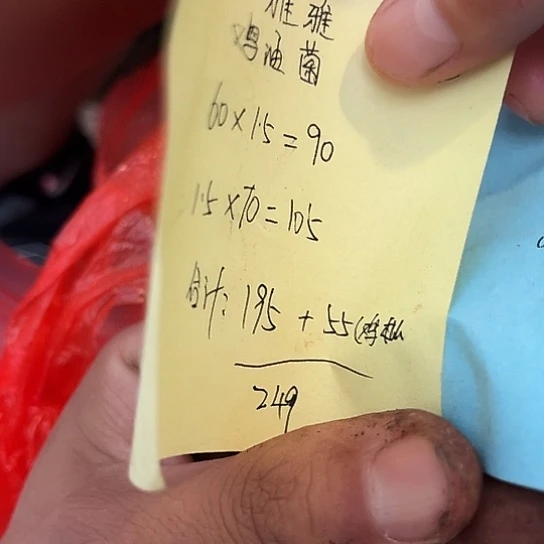 雅
鸡油菌
60×1.5=90
1.5×70=105
合计:195+55(鸡枞
249